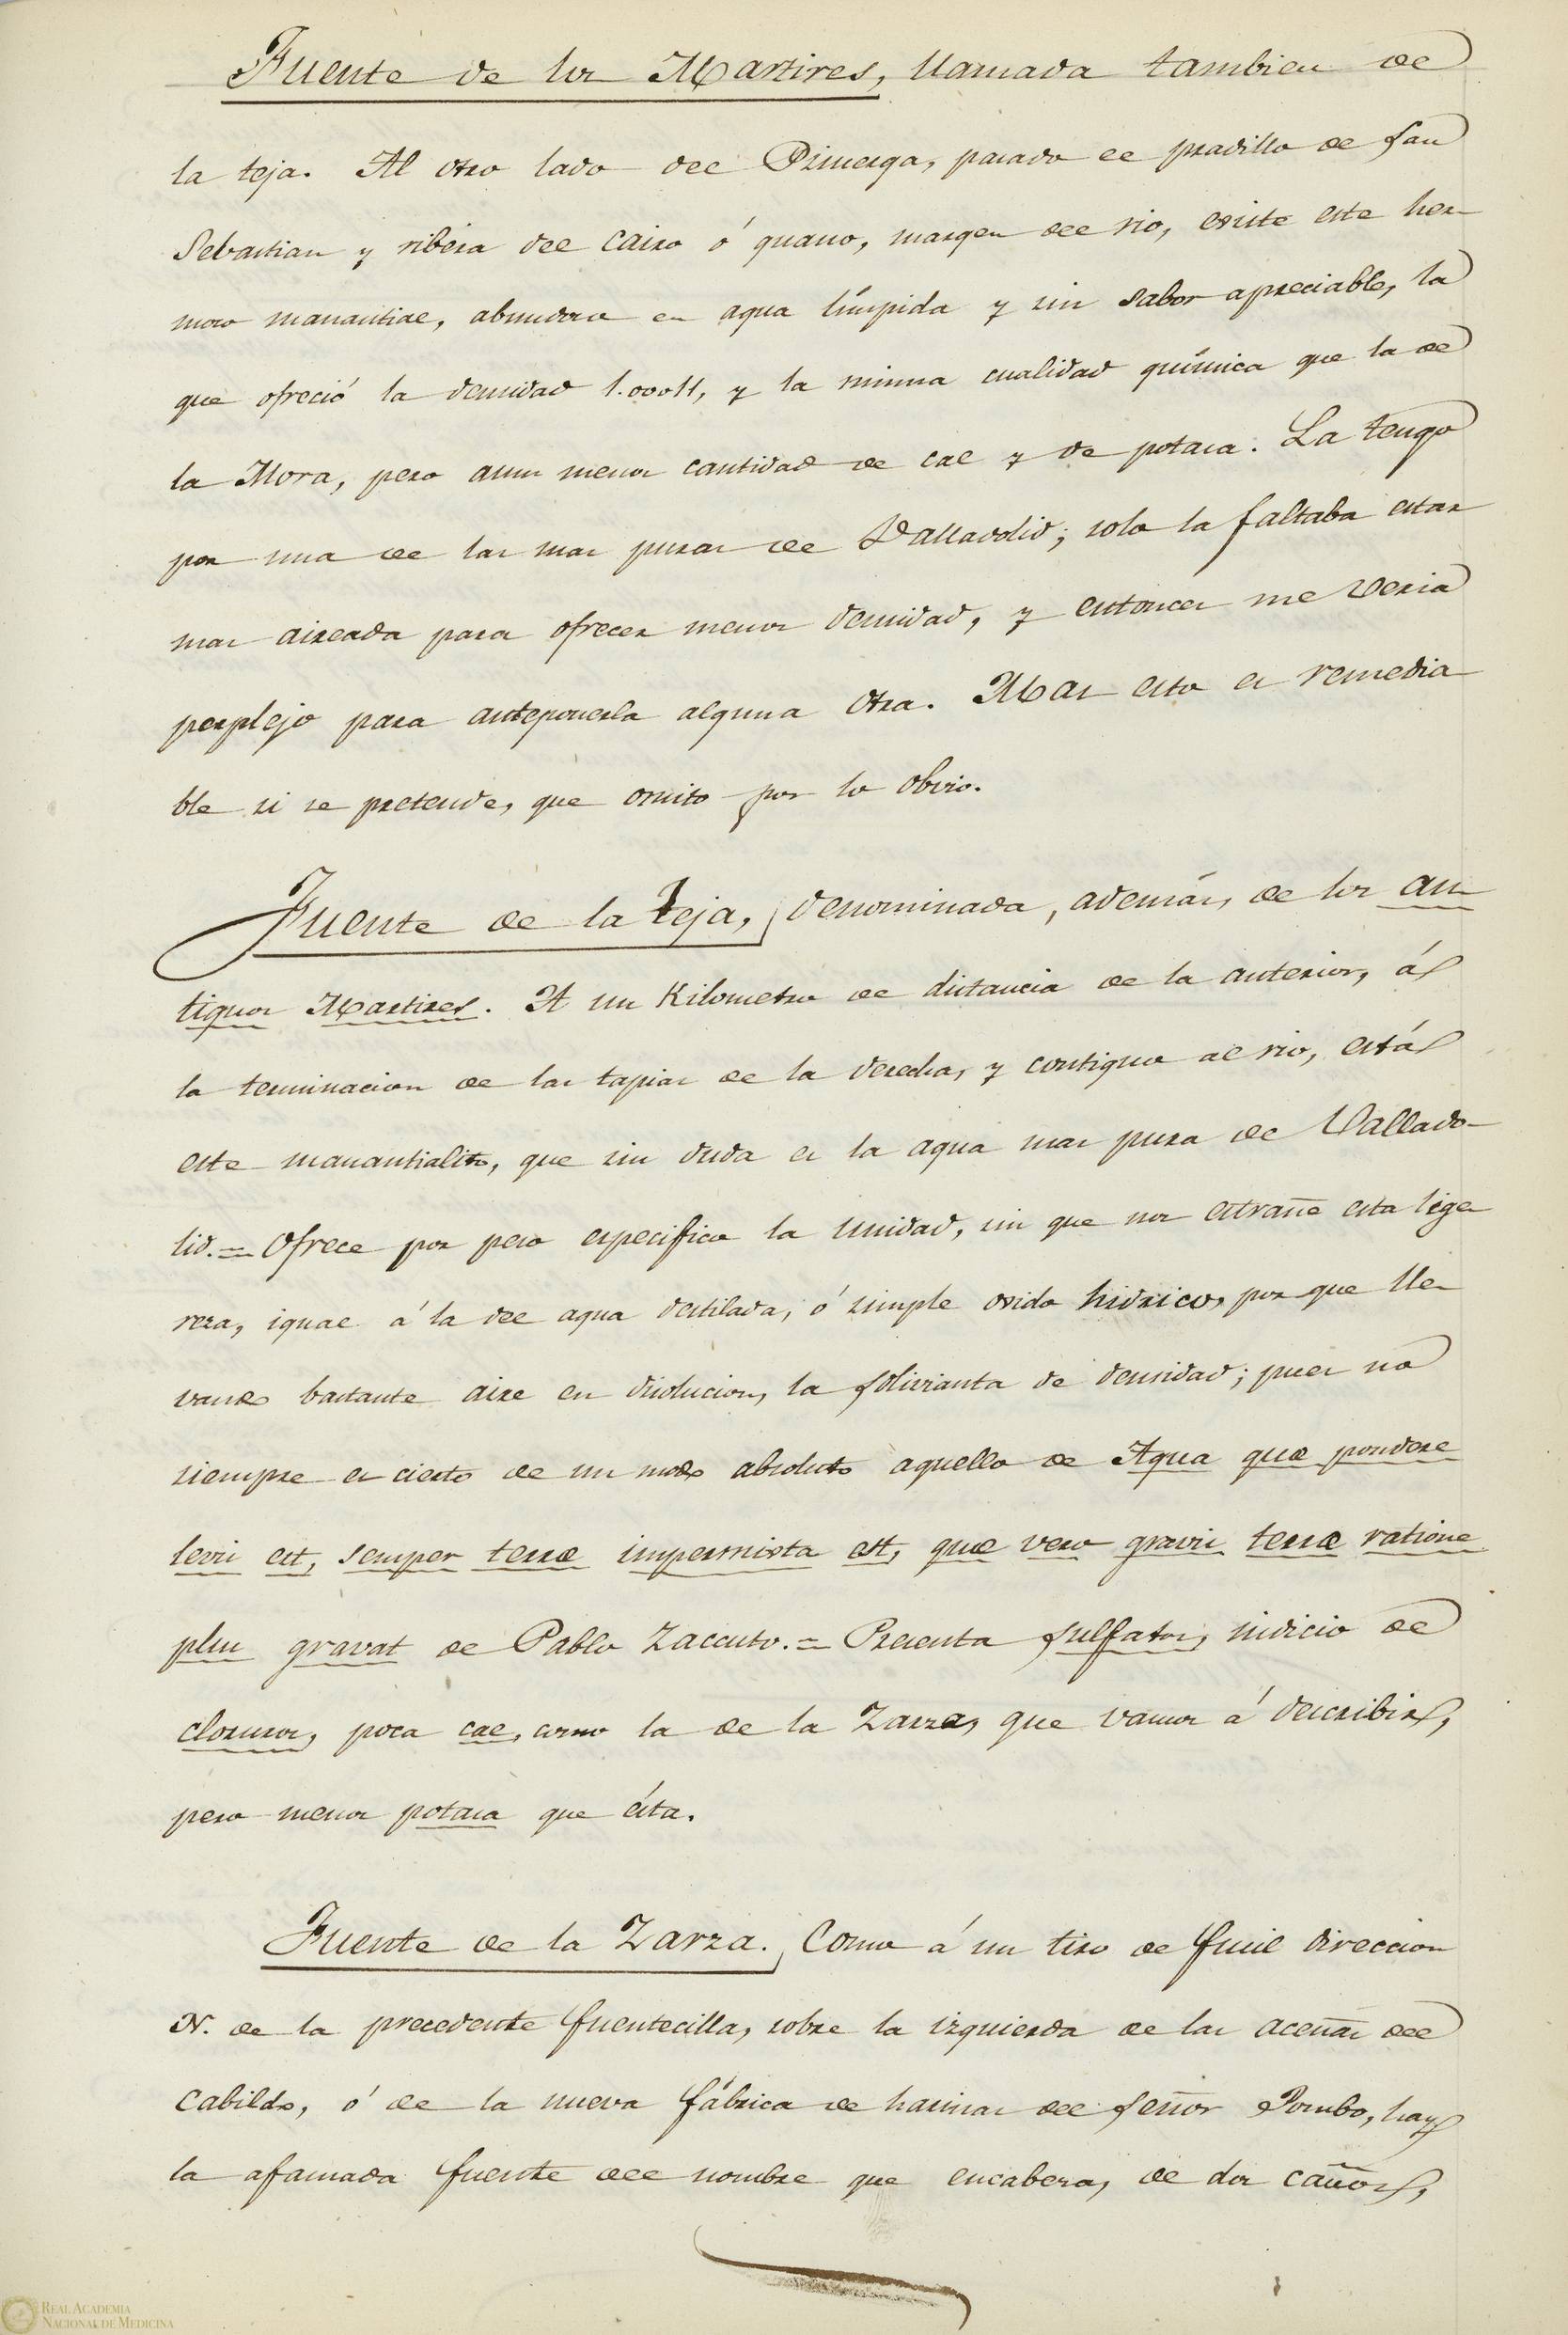 Fuente de los Martires, llamada tambien de
la teja. Al otro lado del Pisuerga, pasado el pradillo de San
Sebastian y ribera del Cairo ó guano, margen del rio, existe este her-
moso manantial, abundoso en agua límpida y sin sabor apreciable, la
que ofreció la densidad 1.00011, y la misma cualidad química que la de
la Mora, pero aun menor cantidad de cal y de potasa. La tengo
por una de las mas puras de Valladolid; solo la faltaba estar
mas aireada para ofrecer menor densidad, y entonces me veria
perplejo para anteponerla alguna otra. Mas esto es remedia
ble si se pretende, que omito por lo obvio.
Fuente de la teja, denominada, además, de los an
tiguos Martires. A un Kilometro de distancia de la anterior, á
la terminacion de las tapias de la derecha, y contiguo al rio, está
este manantialito, que sin duda es la agua mas pura de Vallado-
lid. = Ofrece por peso especifico la unidad, sin que nos estrañe esta lige
reza, igual á la del agua destilada, ó simple oxido hidrico, por que lle-
vando bastante aire en disolucion, la solivianta de densidad; pues no
siempre es cierto de un modo absoluto aquello de Aqua quæ pondere
levis est, semper terræ impermixta est, quæ vero gravis terræ ratione
plus gravat de Pablo Zaccuto. = Presenta sulfatos, indicio de
cloruros, poca cal, como la de la Zarza, que vamos á describir,
pero menos potasa que ésta.
Fuente de la Zarza. Como á un tiro de fusil direccion
N. de la precedente fuentecilla, sobre la izquierda de las aceñas del
Cabildo, ó de la nueva fábrica de harinas del Señor Pombo, hay
la afamada fuente del nombre que encabeza, de dos caños,
REAL ACADEMIA
NACIONAL DE MEDICINA